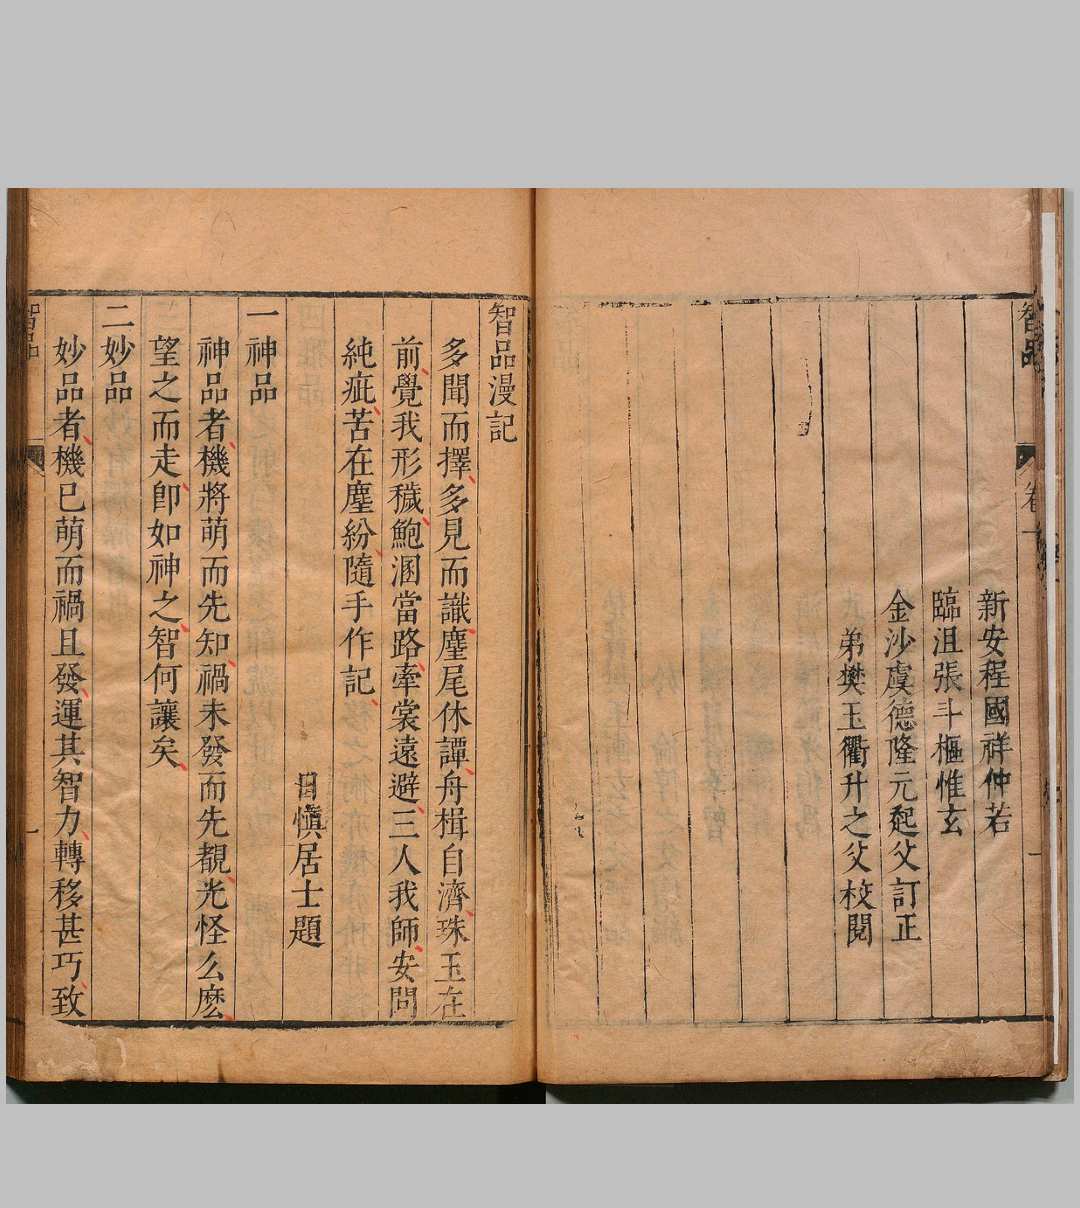 智品
卷一
一
新安程國祥仲若
臨沮張斗樞惟玄
金沙虞德隆元起父訂正
弟樊玉衢升之父校閱
智品漫記
多聞而擇、多見而識、麈尾休譚、舟楫自濟、珠玉在
前、覺我形穢、鮑溷當路、牽裳遠避、三人我師、安問
純疵、苦在塵紛、隨手作記、
日愼居士題
一神品
神品者、機將萌而先知、禍未發而先覩、光怪么麽、
望之而走、卽如神之、智何讓矣、
二妙品
妙品者、機已萌而禍且發、運其智力、轉移甚巧、致
智品
一